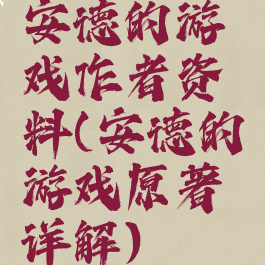 安德的游
戏作者资
料(安德的
游戏原著
详解)